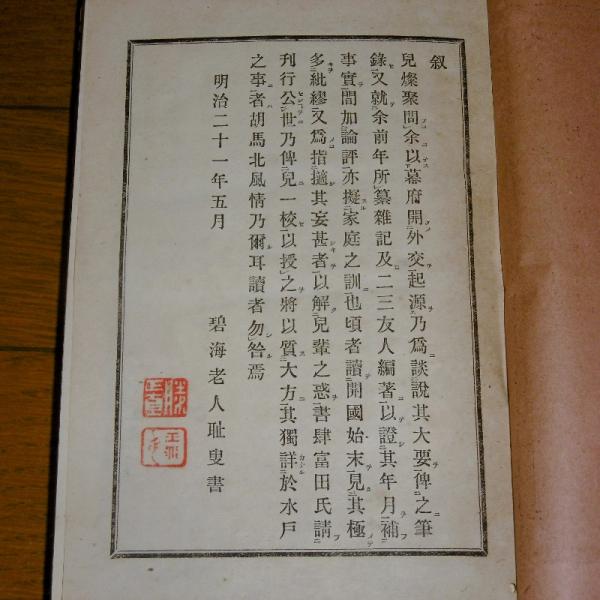 叙
兒燦聚問余以幕府開外交起源乃爲談說其大要俾之筆
錄又就余前年所纂雜記及二三友人編著以證其年月補
事實間加論評亦擬家庭之訓也頃者讀開國始末見其極
多紕繆又爲指摘其妄甚者以解兒輩之惑書肆富田氏請
刊行公世乃俾兒一校以授之將以質大方其獨詳於水戶
之事者胡馬北風情乃爾耳讀者勿咎焉
明治二十一年五月
碧海老人耻叟書